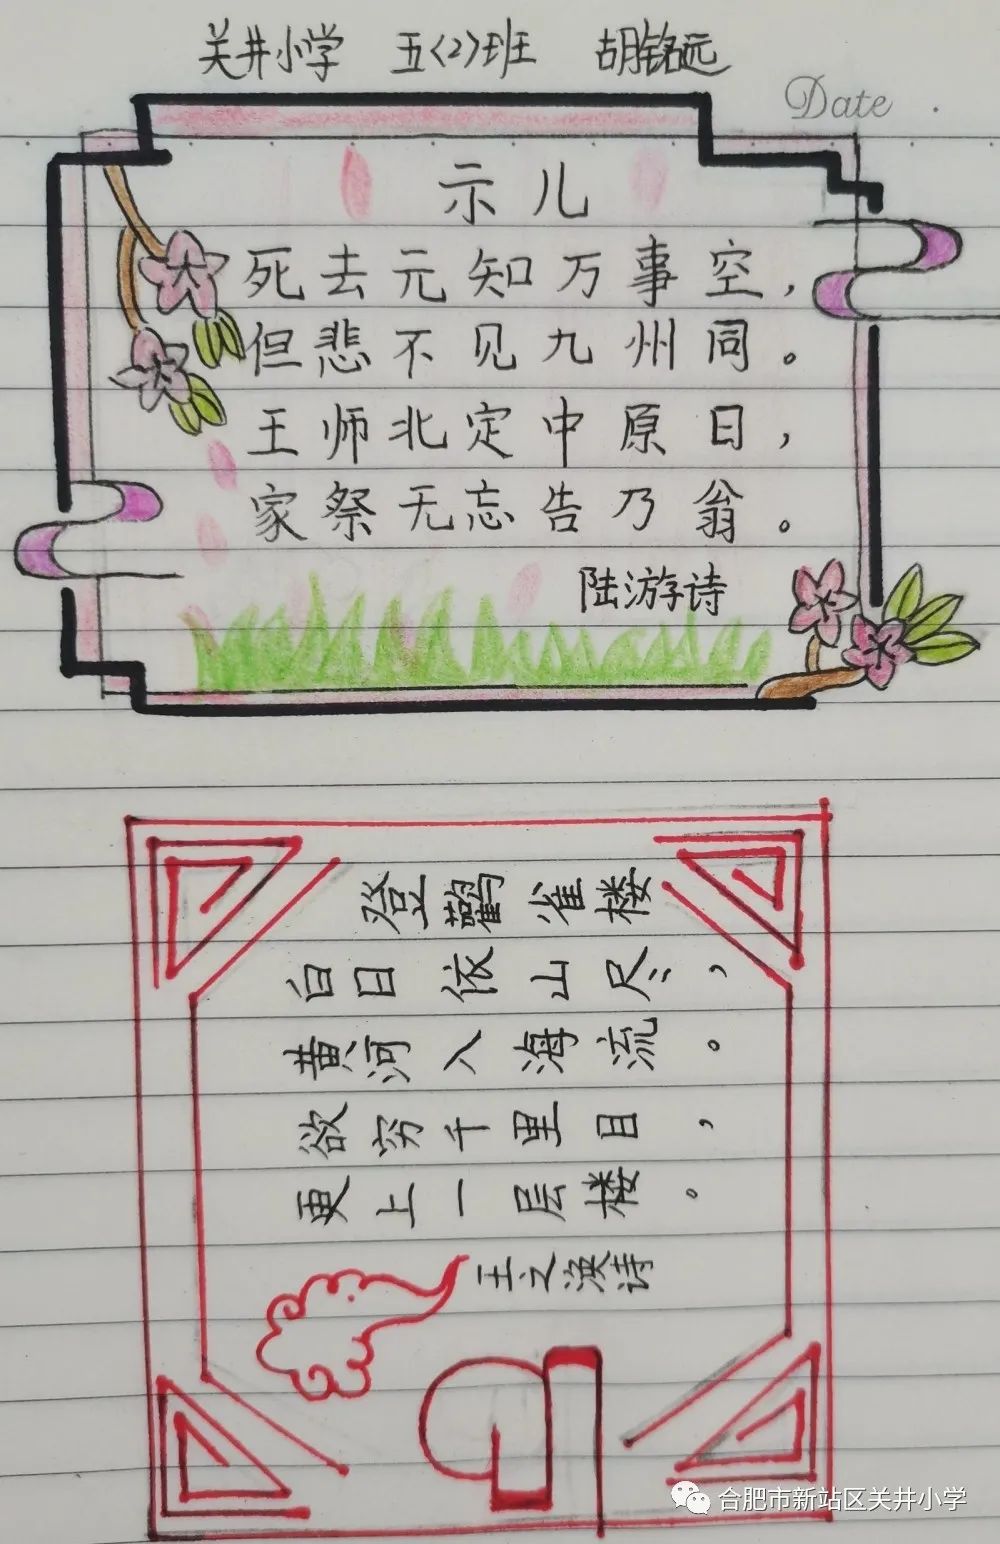 关井小学 五(2)班 胡铭远
Date
示儿
死去元知万事空，
但悲不见九州同。
王师北定中原日，
家祭无忘告乃翁。
陆游诗
登鹳雀楼
白日依山尽，
黄河入海流。
欲穷千里目，
更上一层楼。
王之涣诗
合肥市新站区关井小学